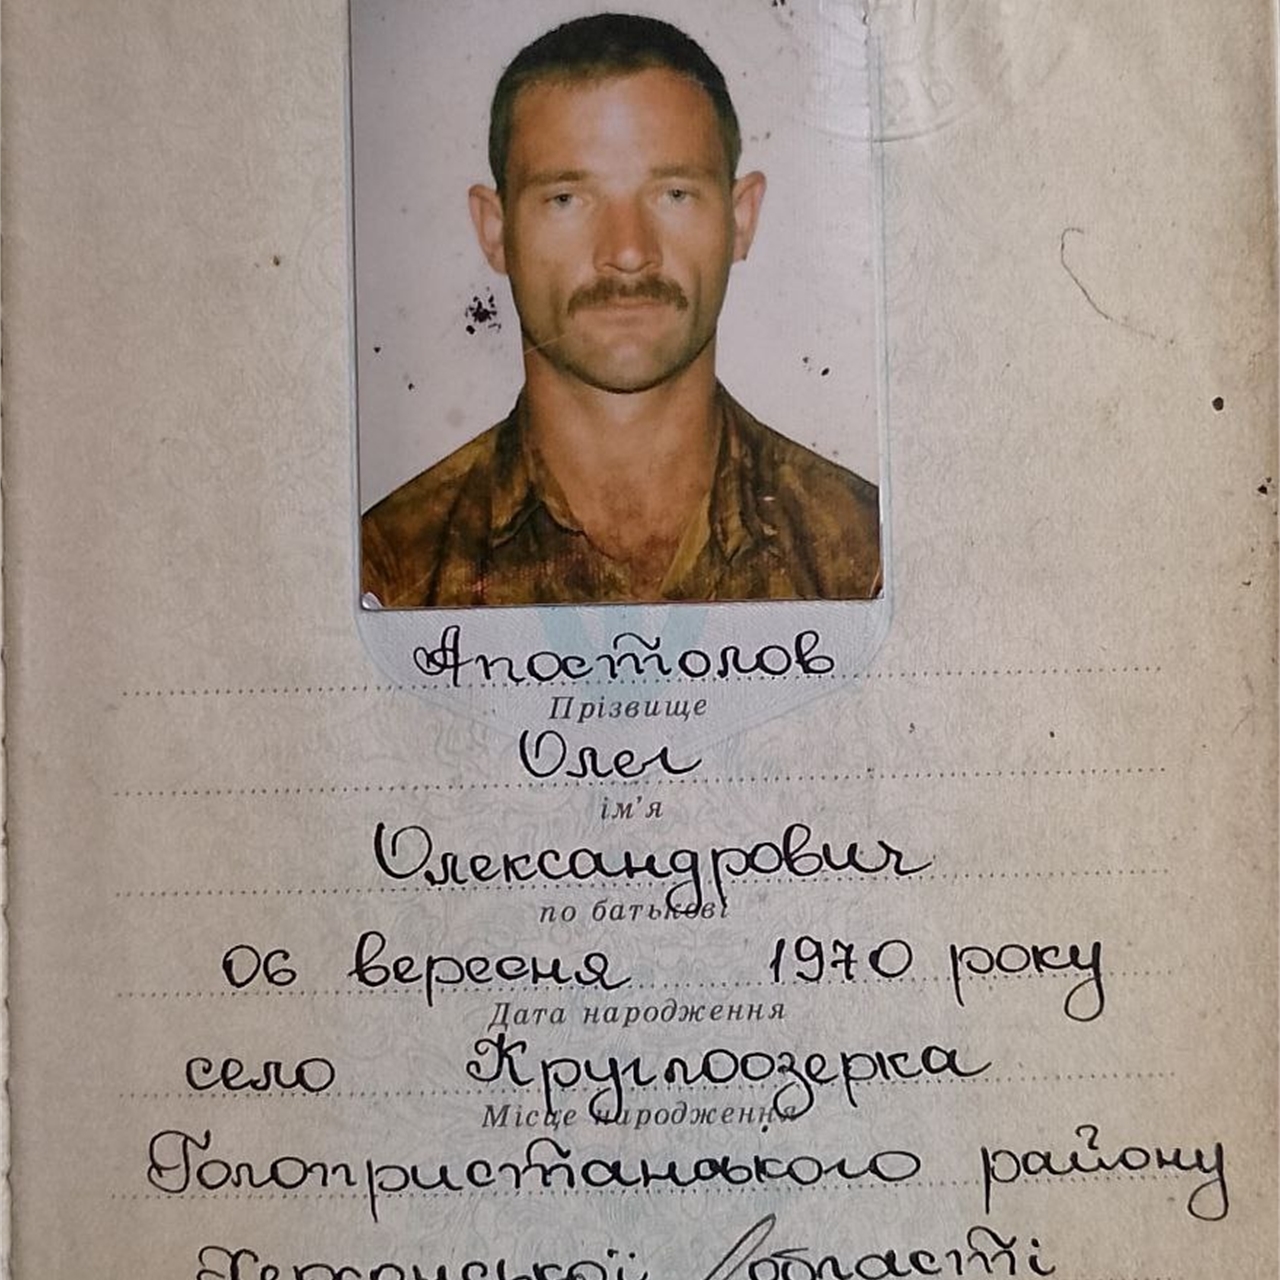 Апостолов
Прізвище
Олег
ім'я
Олександрович
по батькові
06 вересня 1970 року
Дата народження
село Круглоозерка
Місце народження
Голопристанського району
Херсонської області